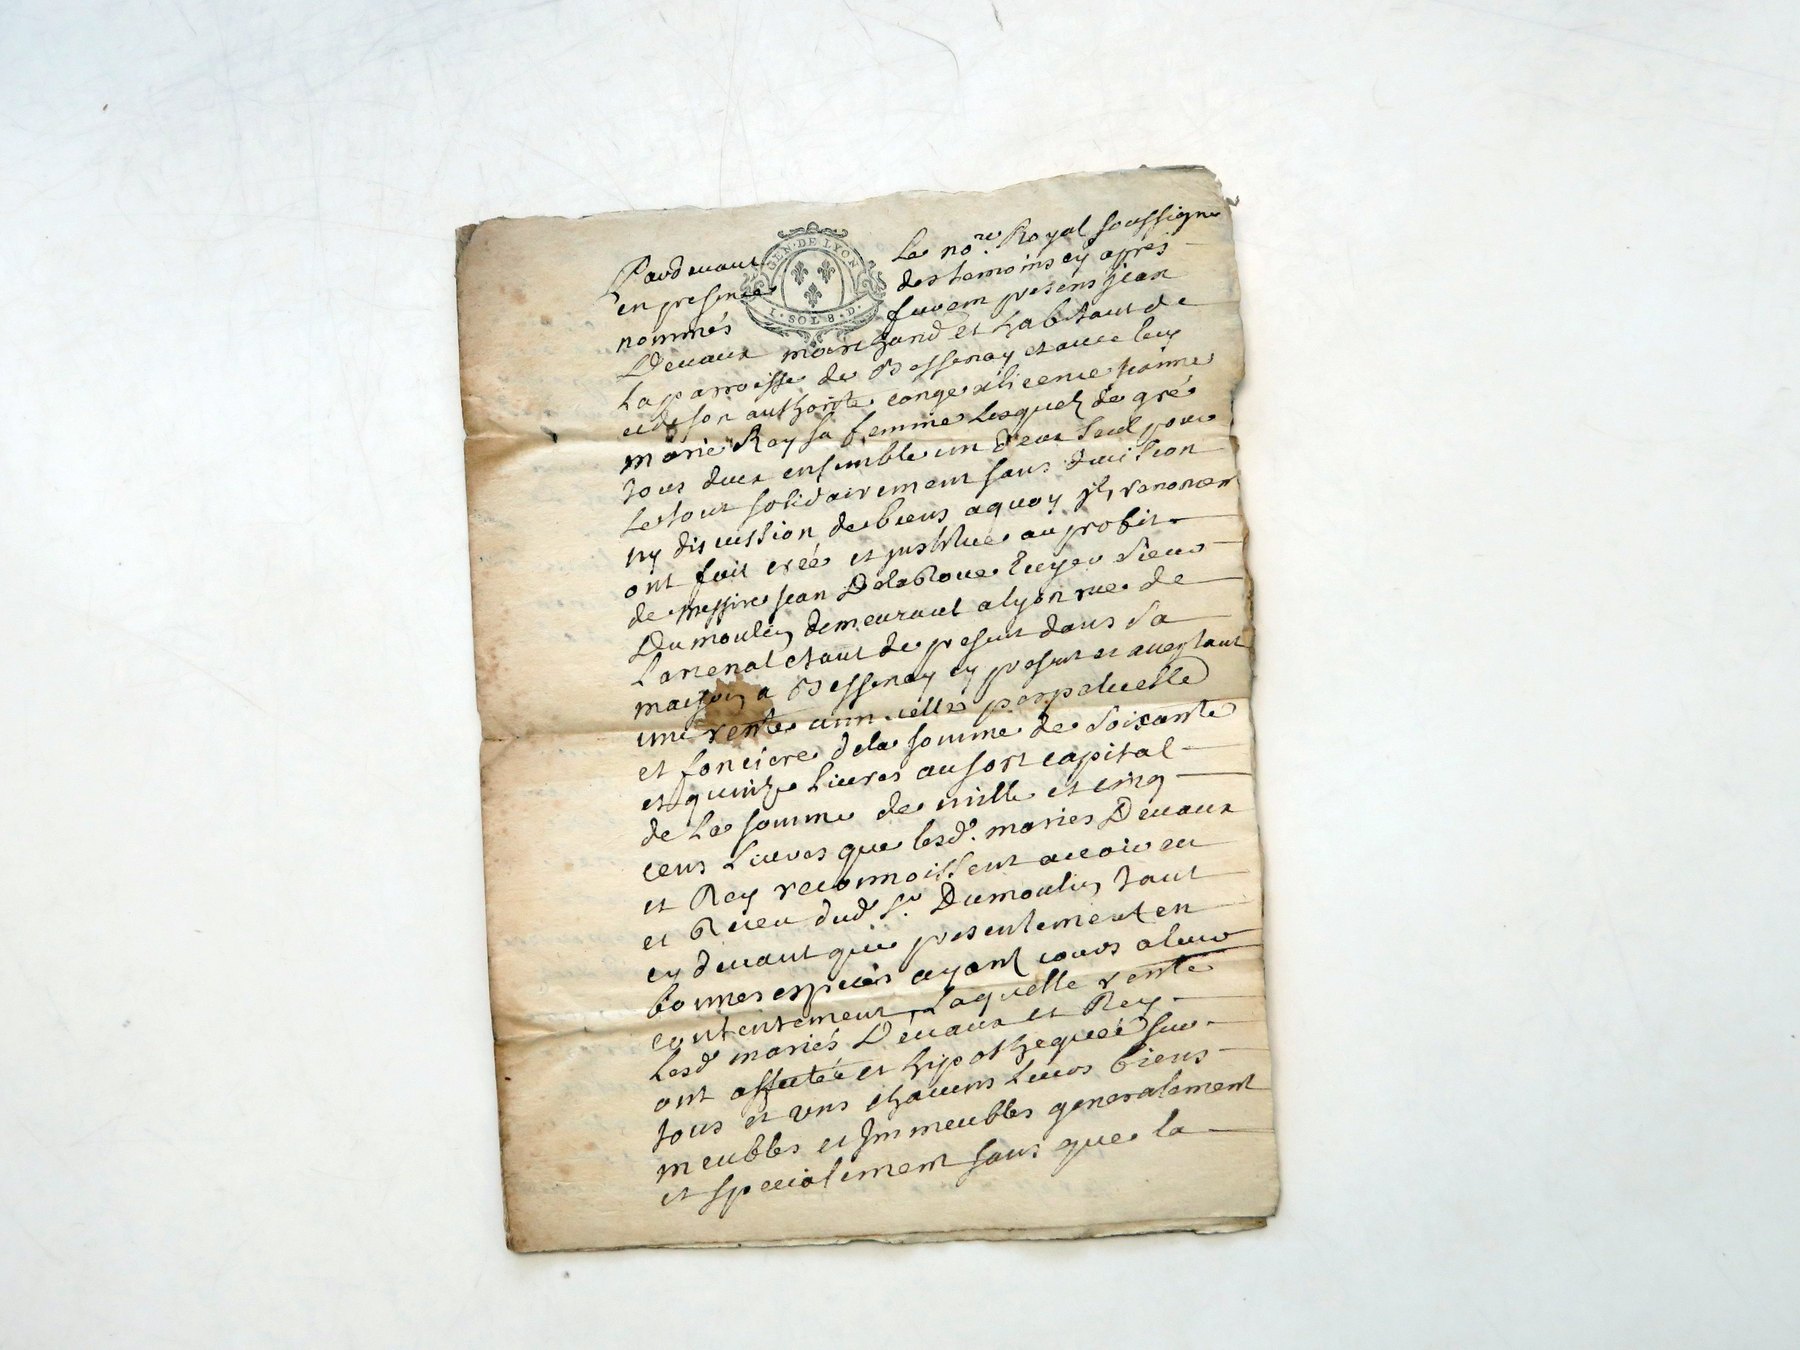 GEN · DE LYON
1 · SOL 8 · D ·
Pardevant Le no.re Royal soussigné
en presence des temoins cy apres
nommés furent presens Jean
Devaux marchand et habitant de
La parroisse de Bessenay et avec luy
et de son authorité congé et licence
marie Rey sa femme Lesquels de gré
tous deux ensemble un d'eux seul pour
Le tout solidairement sans division
ny discussion de biens a quoy ils renoncent
ont fait créé et institué au profit
de messire Jean Delaroue Ecuyer sieur
Dumoulin demeurant a lyon rue de
Larcenal etant de present dans sa
maison a Bessenay cy present et acceptant
une rente annuelle perpetuelle
et fonciere de la somme de soixante
et quinze Livres au sort capital
de La somme de mille et cinq
cens Livres que lesd. mariés Devaux
et Rey reconnoissent avoir eu
et Receu dud. Sr. Dumoulin tant
cy devant que presentement en
bonnes especes ayant cours a leur
contentement, Laquelle rente
Lesd mariés Devaux et Rey
ont affectée et hipothequée sur
tous et uns chacuns Leurs biens
meubles et Immeubles generalement
et specialement sans que la